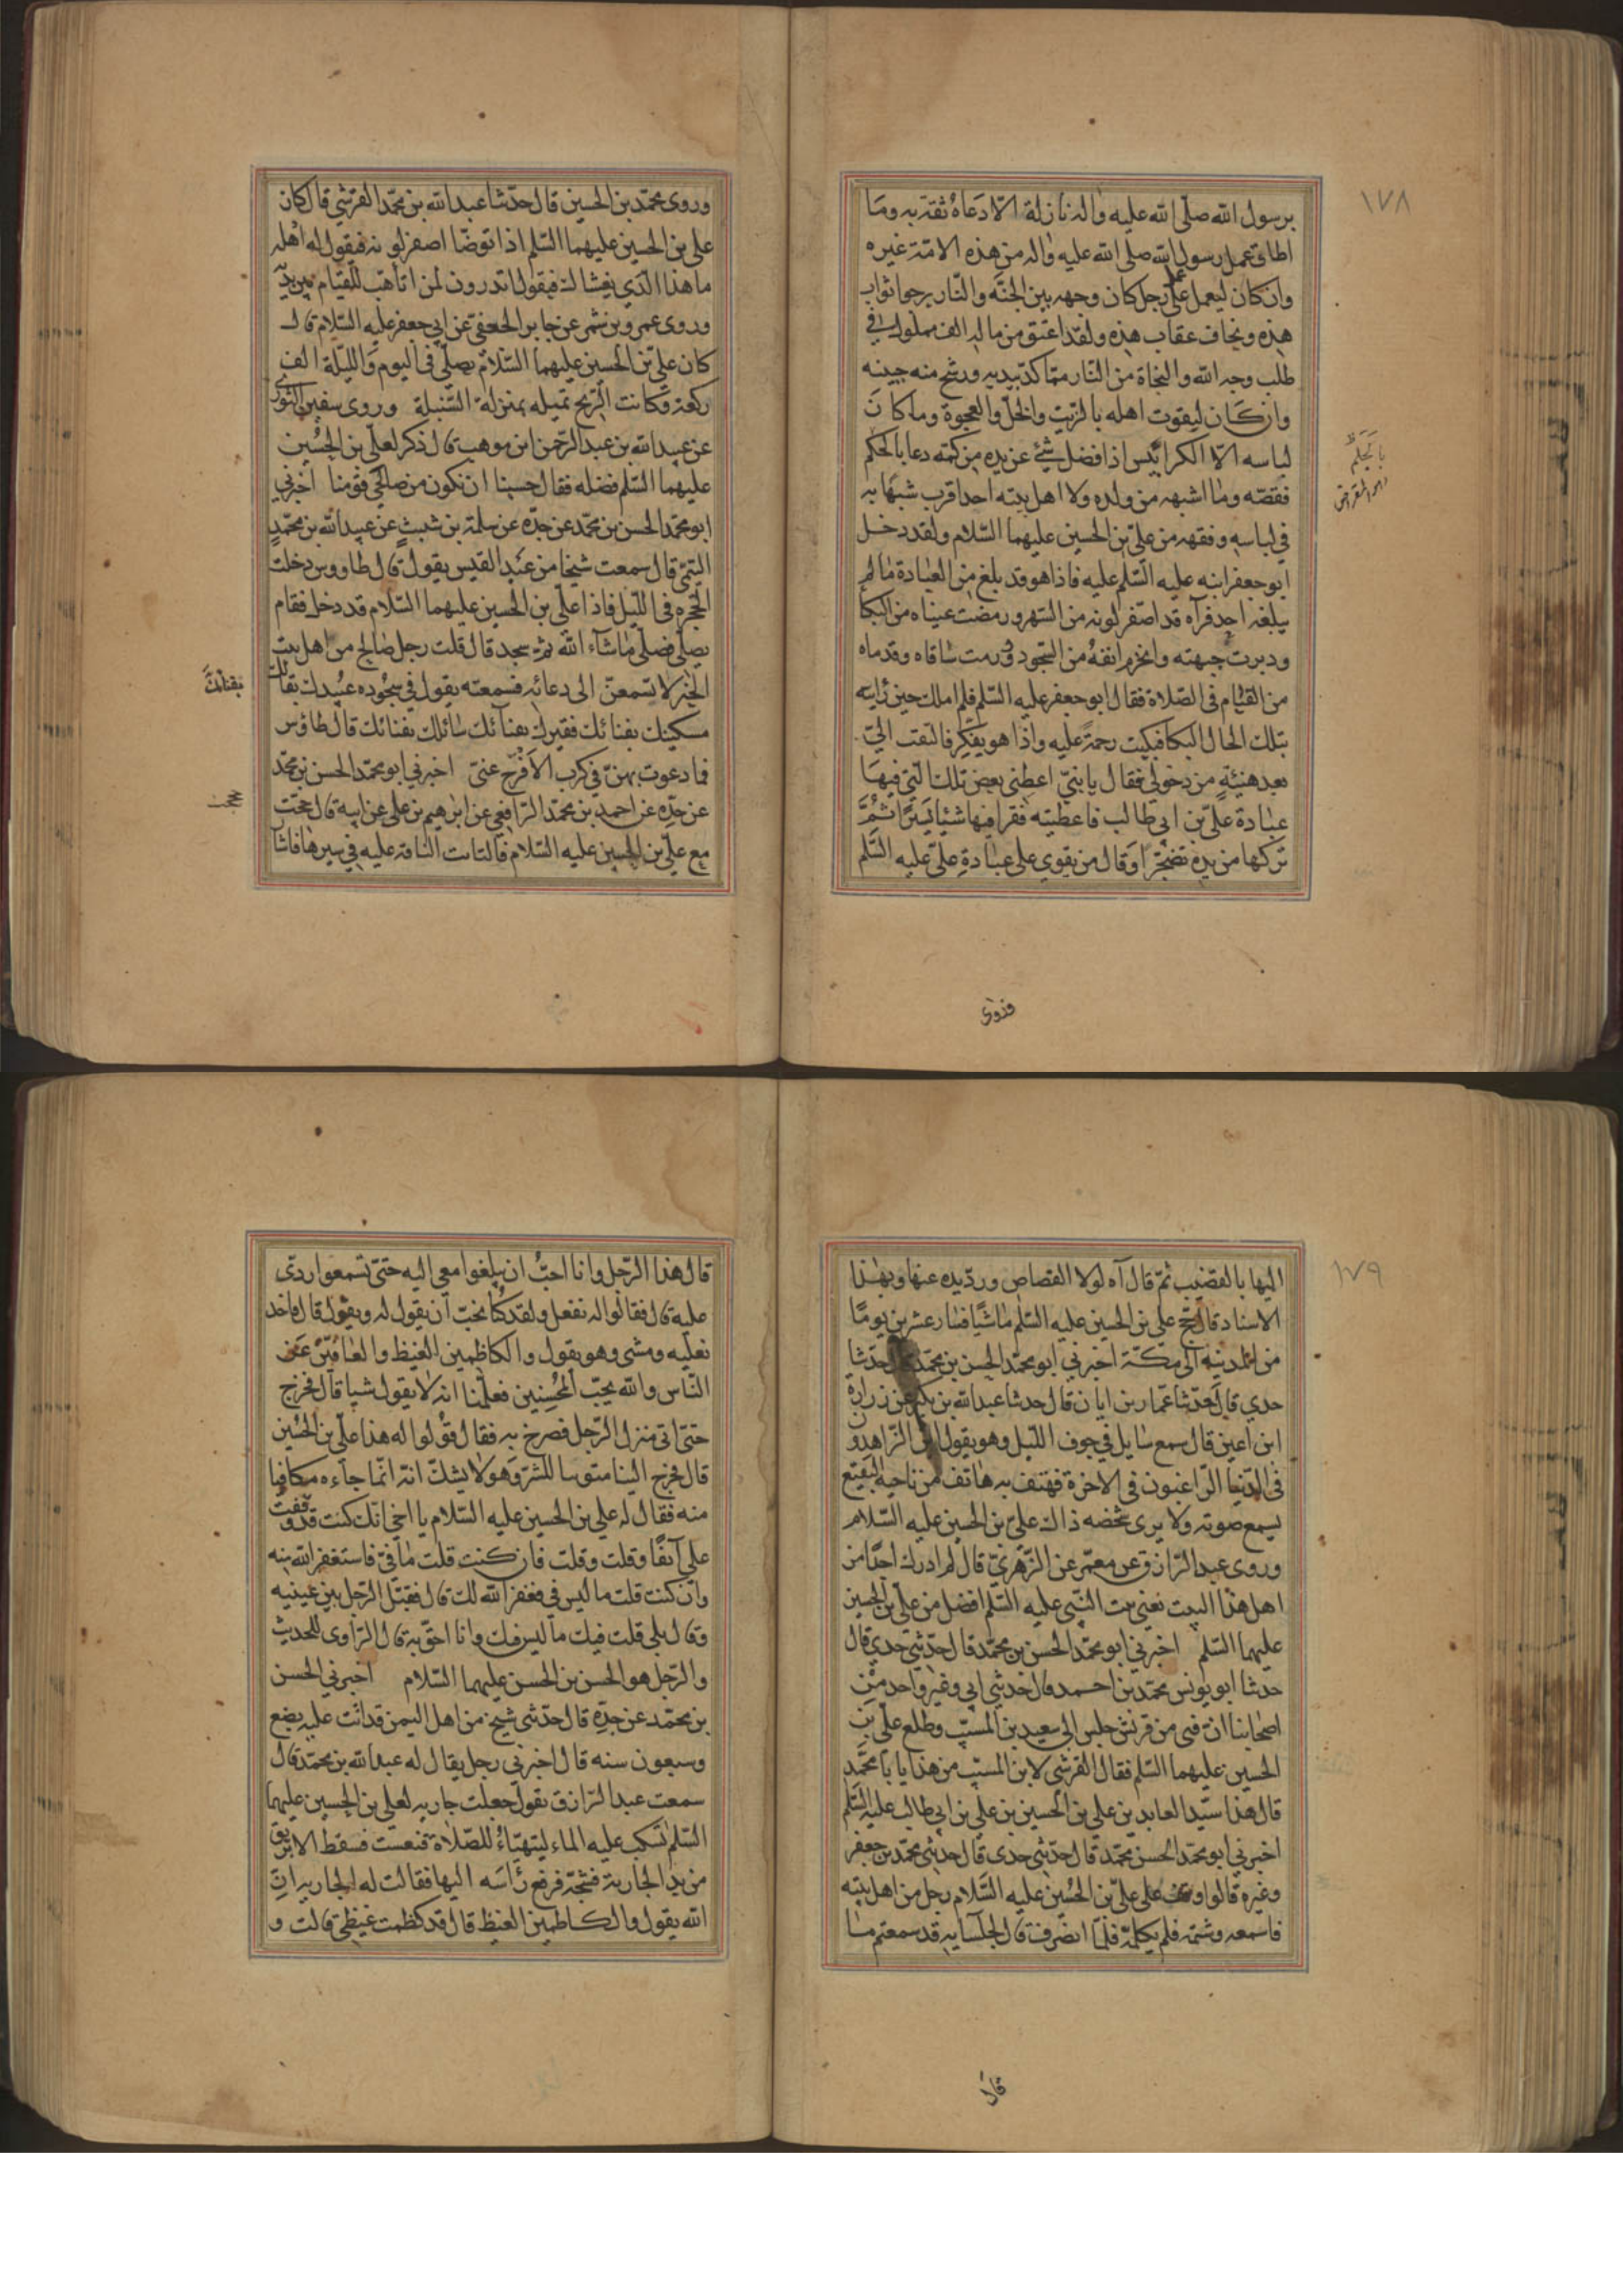 ١٧٨
برسول الله صلّى الله عليه واله نازلة الّا دعاه ثقة به وما
اطاق عمل رسول الله صلى الله عليه واله من هذه الامّة غيره
وان كان ليعمل عمل رجل كان وجهه بين الجنّة والنّار يرجوا ثواب
هذه ويخاف عقاب هذه ولقد اعتق من ماله الف مملوك في
طلب وجه الله والنجاة من النّار ممّا كدّ بيديه ورشح منه جبينه
وان كان ليقوت اهله بالزّيت والخلّ والعجوة وما كان
لباسه الّا الكرابيس اذا فضل شئ عن يده من كمّه دعا بالحكم
فقصّه وما اشبهه من ولده ولا اهل بيته احد اقرب شبها به
في لباسه وفقهه من عليّ بن الحسين عليهما السّلام ولقد دخل
ابو جعفر ابنه عليه السّلم عليه فاذا هو قد بلغ من العبادة ما لم
يبلغه احد فرآه قد اصفرّ لونه من السّهر ورمضت عيناه من البكا
ودبرت جبهته وانخرم انفه من السّجود وورمت ساقاه وقدماه
من القيام في الصّلاة فقال ابو جعفر عليه السّلم فلم املك حين رايته
بتلك الحال البكا فبكيت رحمة عليه واذا هو يفكر فالتفت اليّ
بعد هنيئة من دخولي فقال يا بنيّ اعطني بعض تلك الّتي فيها
عبادة عليّ بن ابي طالب فاعطيته فقرا فيها شيئا يسيرا ثمّ
تركها من يده تضجّرا وقال من يقوي على عبادة عليّ عليه السّلم
بالجلم
وروى
وروى محمّد بن الحسين قال حدّثنا عبد الله بن محمّد القرشي قال كان
علي بن الحسين عليهما السّلم اذا توضّا اصفر لونه فيقول له اهله
ما هذا الّذي يغشاك فيقول اتدرون لمن اتأهّب للقيام بين يديه
وروى عمرو بن شمر عن جابر الجعفيّ عن ابي جعفر عليه السّلام قال
كان عليّ بن الحسين عليهما السّلام يصلّي في اليوم واللّيلة الف
ركعة وكانت الرّيح تميله بمنزلة السّنبلة وروى سفين الثوري
عن عبيد الله بن عبد الرّحمن ابن موهب قال ذكر لعليّ بن الحسين
عليهما السّلم فضله فقال حسبنا ان نكون من صالحي قومنا اخبرني
ابو محمّد الحسن بن محمّد عن جدّه عن سلمة بن شبيب عن عبيد الله بن محمّد
التيمي قال سمعت شيخا من عبد القيس يقول قال طاووس دخلت
الحجره في اللّيل فاذا عليّ بن الحسين عليهما السّلام قد دخل فقام
يصلّي فصلّى ما شآء الله ثمّ سجد قال قلت رجل صالح من اهل بيت
الخير لاستمعنّ الى دعائه فسمعته يقول في سجوده عبيدك بفنائك
مسكينك بفنائك فقيرك بفنآئك سائلك بفنائك قال طاؤس
فما دعوت بهنّ في كرب الّا فرّج عنّي اخبرني ابو محمّد الحسن بن محمّد
عن جدّه عن احمد بن محمّد الرّافعي عن ابرهيم بن علي عن ابيه قال حججت
مع عليّ بن الحسين عليه السّلام فالتاثت النّاقة عليه في سيرها فاشا
بفنائك
حججت
١٧٩
اليها بالقضيب ثمّ قال آه لولا القصاص وردّ يده عنها وبهذا
الاسناد قال حجّ علي بن الحسين عليه السّلم ماشيا فسار عشرين يوما
من المدينه الى مكّة اخبرني ابو محمّد الحسن بن محمّد حدثنا
جدي قال حدّثنا عمّار بن ابان قال حدثنا عبد الله بن بكير عن زرارة
ابن اعين قال سمع سايل في جوف اللّيل وهو يقول اين الزّاهدون
في الدّنيا الرّاغبون في الاخرة فهتف به هاتف من ناحية البقيع
يسمع صوته ولا يرى شخصه ذاك عليّ بن الحسين عليه السّلام
وروى عبد الرّزاق عن معمّر عن الزّهري قال لم ادرك احدا من
اهل هذا البيت يعني بيت النّبي عليه السّلم افضل من علي بن الحسين
عليهما السّلم اخبرني ابو محمّد الحسن بن محمّد قال حدّثني جدي قال
حدثنا ابو يونس محمّد بن احمد قال حدثني ابي وغير واحد من
اصحابنا انّ فتى من قريش جلس الى سعيد بن المسيّب وطلع علي بن
الحسين عليهما السّلم فقال القرشي لابن المسيّب من هذا يا با محمّد
قال هذا سيّد العابدين علي بن الحسين بن علي بن ابي طالب عليه السّلم
اخبرني ابو محمّد الحسن محمّد قال حدّثني جدي قال حدثني محمّد بن جعفر
وغيره قالوا وقف على عليّ بن الحسين عليه السّلام رجل من اهل بيته
فاسمعه وشتمه فلم يكلّمه فلمّا انصرف قال لجلسايه قد سمعتم ما
قال
قال هذا الرّجل وانا احبّ ان يبلغوا معي اليه حتّى تسمعوا ردّي
عليه قال فقالوا له نفعل ولقد كنّا نحبّ ان يقول له ويقول قال فاخذ
نعليه ومشى وهو يقول والكاظمين الغيظ والعافين عن
النّاس والله يحبّ المحسنين فعلمنا انه لا يقول شيا قال فخرج
حتى اتى منزل الرّجل فصرخ به فقال قولوا له هذا عليّ بن الحسين
قال فخرج الينا متوثبا للشرّ وهو لا يشكّ انّه انّما جآءه مكافيا
منه فقال له علي بن الحسين عليه السّلام يا اخي انّك كنت قد وقفت
علي آنفا وقلت وقلت فان كنت قلت ما فيّ فاستغفر الله منه
وان كنت قلت ما ليس في فغفر الله لك قال فقبّل الرّجل بين عينيه
وقال بلى قلت فيك ما ليس فيك وانا احقّ به قال الرّاوي للحديث
والرّجل هو الحسن بن الحسن عليهما السّلام اخبرني الحسن
بن محمّد عن جدّه قال حدّثني شيخ من اهل اليمن قد اتت عليه بضع
وسبعون سنه قال اخبرني رجل يقال له عبد الله بن محمّد قال
سمعت عبد الرّزاق يقول جعلت جاريه لعلي بن الحسين عليهما
السّلم تسكب عليه الماء ليتهيّاء للصّلاة فنعست فسقط الابريق
من يد الجارية فشجّه فرفع رأسه اليها فقالت له الجاريه انّ
الله يقول والكاظمين الغيظ قال قد كظمت غيظي قالت و